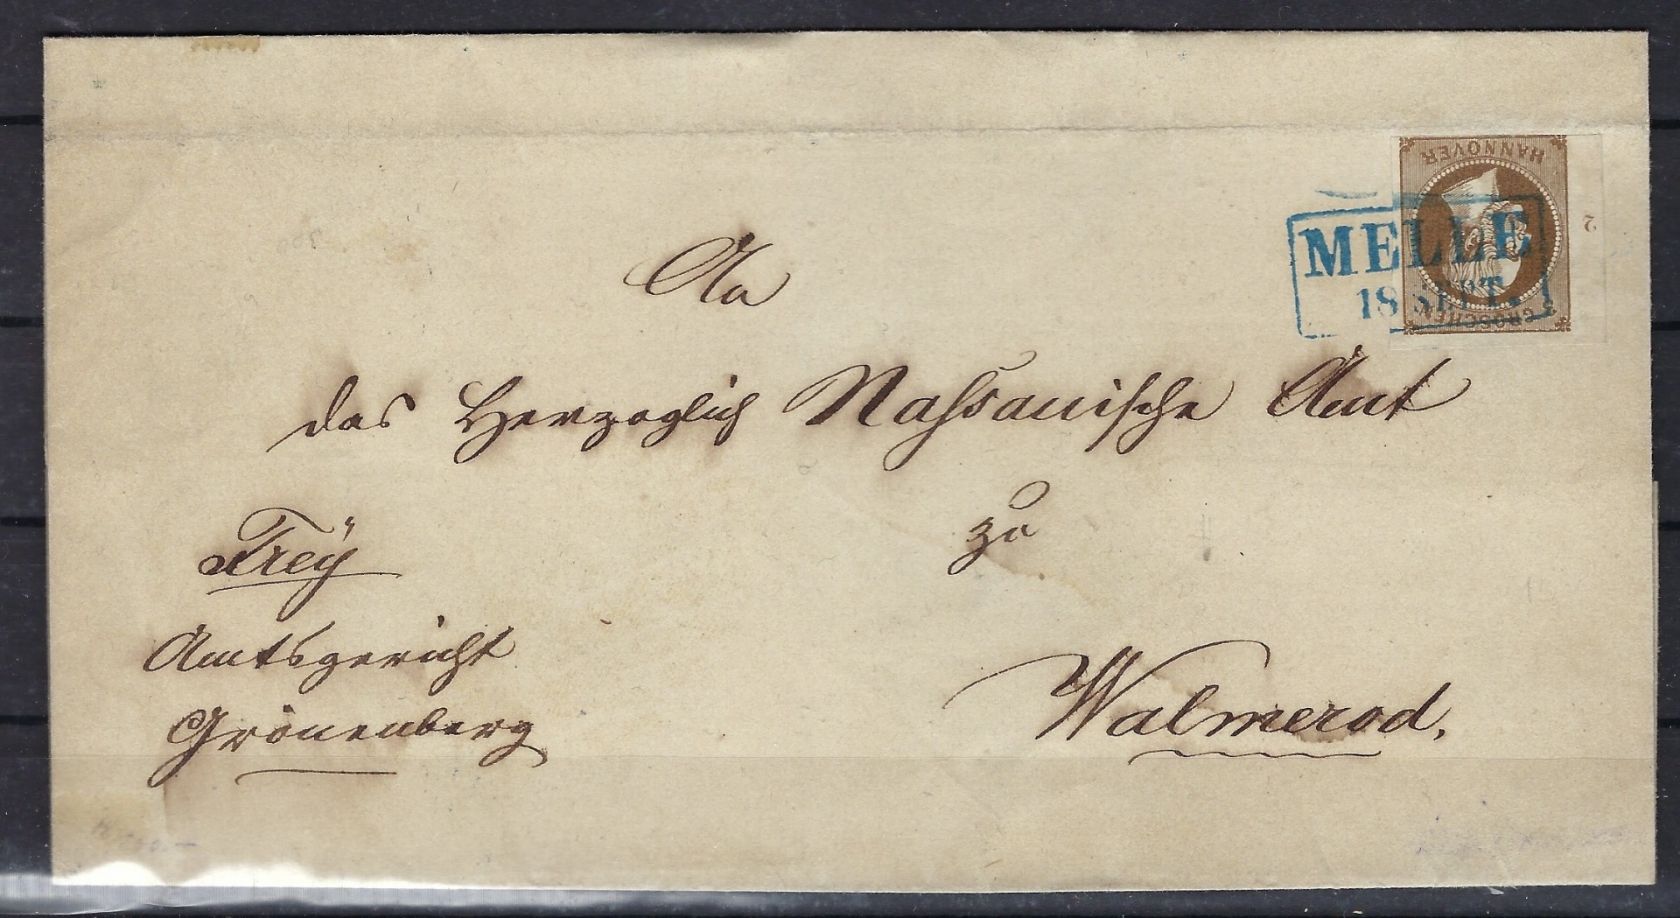 HANNOVER
2
MELLE
18 SEPT.
GROSCHEN
An
das Herzoglich Nassauische Amt
zu
Walmerod.
Frey
Amtsgericht
Grönenberg